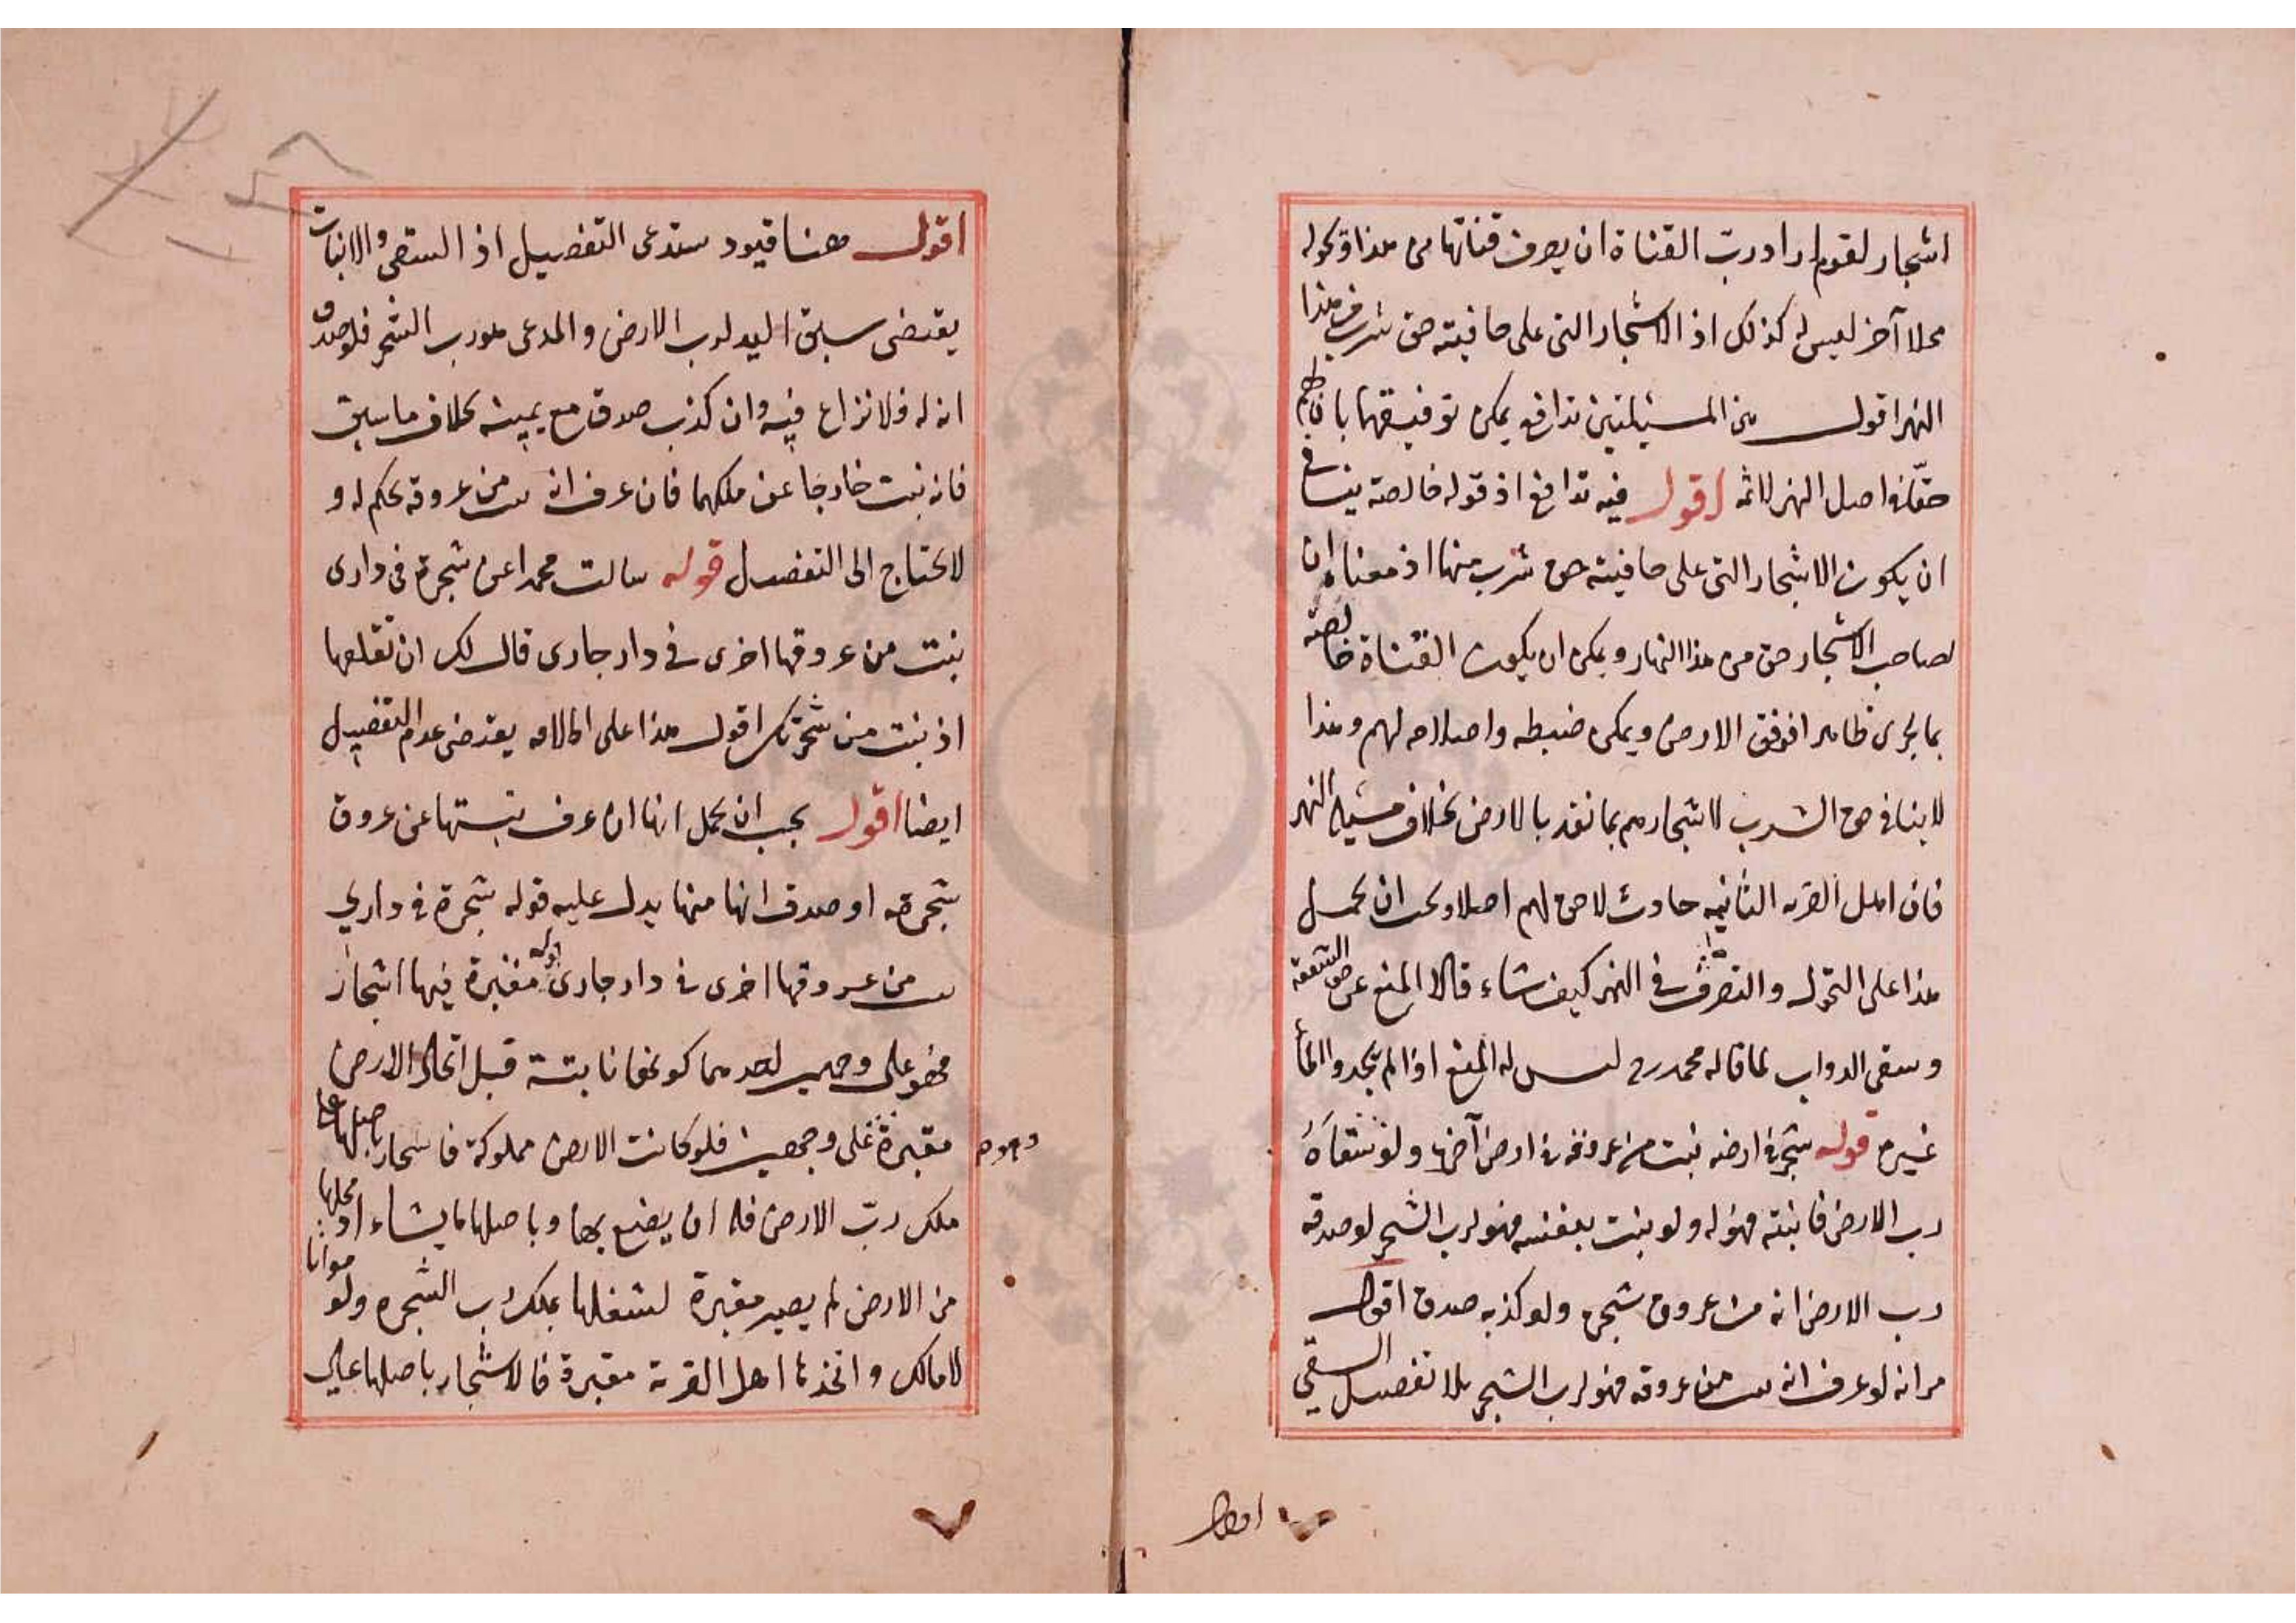 اشجار لقوم اراد رب القناة ان يصرف قناتها من هذا وتحوله
محلا آخر ليس له كذلك اذ الاشجار التى على حافيته حق شرب فى هذا
النهر اقول بين المسئيلتين تدافع يمكن توفيقها بان لهم
حقا فى اصل النهر اقول فيه تدافع اذ قوله خالصة ينافى
ان يكون الاشجار التى على حافيته حق شرب منها اذ معناه ان
لصاحب الاشجار حق من هذا النهار ويمكن ان يكون القناة خالصة
بما يجرى ظاهرا فوق الارض ويمكن ضبطه واصلاحه لهم وهذا
لا ينافى حق الشرب لاشجارهم بما نفد بالارض بخلاف مسئيلة النهر
فان اهل القريه الثانيه حادث لا حق لهم اصلا ويجب ان يحمل
هذا على التحول والتصرف فى النهر كيف شاء قالا المنع عن حق الشفعة
وسقى الدواب لما قاله محمد رح ليس له المنع اذا لم يجدوا الماء
غيره قوله شجرة فى ارضه نبت من عروقه فى ارض آخر ولو سقاه
رب الارض فانبته فهو له ولو نبت بنفسه فهو لرب الشجر لو صدقه
رب الارض انه من عروق شجره ولو كذبه صدق اقول
مر انه لو عرف انه نبت من عروقه فهو لرب الشجر بلا تفصيل السقي
اقول
اقول هنا قيود ستدعى التفصيل اذ السقى والانبات
يقتضى سبق اليد لرب الارض والمدعى هو رب الشجر فلو صدق
انه له فلا نزاع فيه وان كذب صدق مع يمينه بخلاف ما سبق
فانه نبت خارجا عن ملكهما فان عرف انه نبت من عروقه يحكم له و
لا يحتاج الى التفصيل قوله سالت محمدا عن شجرة فى دارى
نبتت من عروقها اخرى فى دار جارى قال لك ان تقلعها
اذ نبت من شجرتك اقول هذا على اطلاقه يقتضى عدم التفصيل
ايضا اقول يجب ان يحمل انها ان عرف نبتها عن عروق
شجرته او صدق انها منها يدل عليه قوله شجرة فى داري
نبت من عروقها اخرى فى دار جارى قوله مقبرة فيها اشجار
فهو على وجهين احدهما كونها نابتة قبل اتخاذ الارض
مقبرة على وجهين فلو كانت الارض مملوكة فاشجار باصلها على
وهو م
ملك رب الارض فله ان يصنع بها وباصلها ما يشاء او محلها
من الارض لم يصير مقبرة لشغلها بملك رب الشجره ولو مواتا
لا مالك واتخذها اهل القرية مقبرة فالاشجار باصلها على